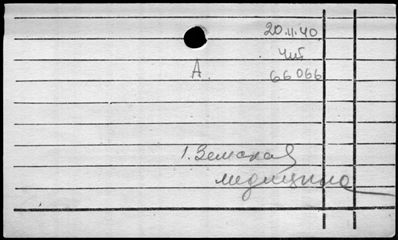 20.II.40
Чит
А
66066
1. Земская
медицина